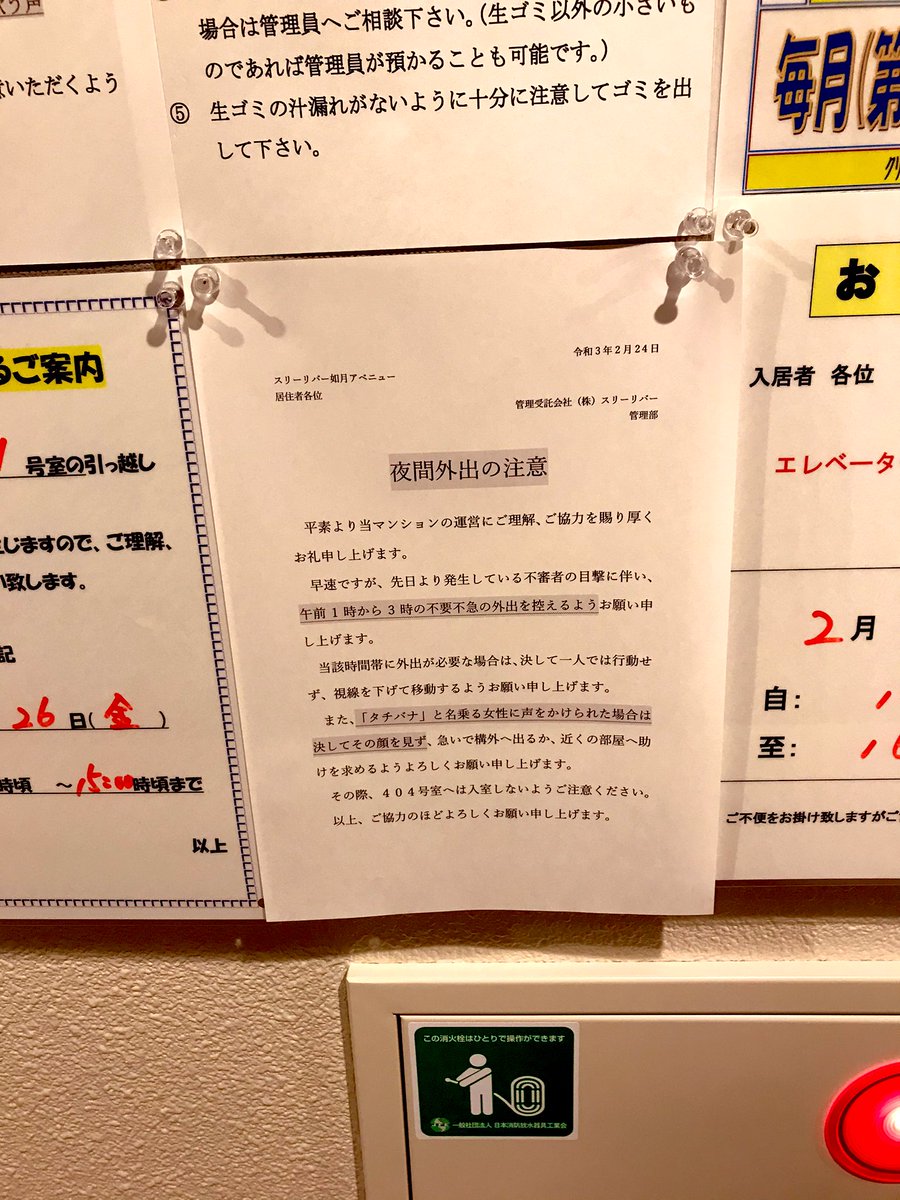 場合は管理員へご相談下さい。(生ゴミ以外の小さいも
のであれば管理員が預かることも可能です。)
⑤ 生ゴミの汁漏れがないように十分に注意してゴミを出
して下さい。
いただくよう
毎月(第
お
入居者 各位
エレベータ
2月
自:
至:
ご不便をお掛け致しますがご
るご案内
号室の引っ越し
生じますので、ご理解、
い致します。
記
26日(金)
時頃 ~15:00時頃まで
以上
令和3年2月24日
スリーリバー如月アベニュー
居住者各位
管理受託会社(株)スリーリバー
管理部
夜間外出の注意
平素より当マンションの運営にご理解、ご協力を賜り厚く
お礼申し上げます。
早速ですが、先日より発生している不審者の目撃に伴い、
午前1時から3時の不要不急の外出を控えるようお願い申
し上げます。
当該時間帯に外出が必要な場合は、決して一人では行動せ
ず、視線を下げて移動するようお願い申し上げます。
また、「タチバナ」と名乗る女性に声をかけられた場合は
決してその顔を見ず、急いで構外へ出るか、近くの部屋へ助
けを求めるようよろしくお願い申し上げます。
その際、404号室へは入室しないようご注意ください。
以上、ご協力のほどよろしくお願い申し上げます。
この消火栓はひとりで操作ができます
一般社団法人 日本消防放水器具工業会